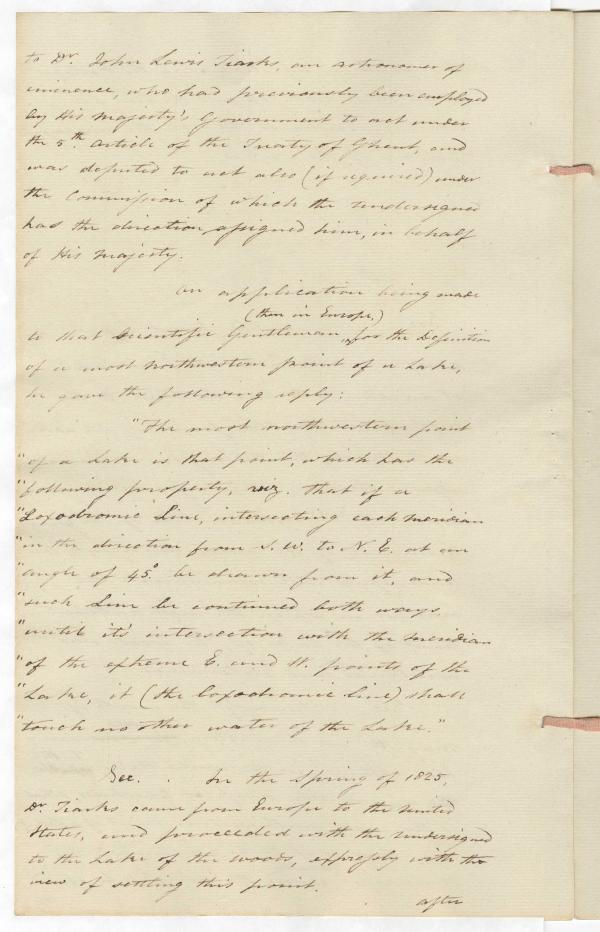 to Dr. John Lewis Tiarks, an astronomer of
eminence, who had previously been employed
by His Majesty's Government to act under
the 5th article of the Treaty of Ghent, and
was deputed to act also (if required) under
the Commission of which the undersigned
has the direction assigned him, in behalf
of His Majesty.
On application being made
(then in Europe,)
to that Scientific Gentleman, for the Definition
of a most northwestern point of a Lake,
he gave the following reply:
"The most northwestern point
"of a Lake is that point, which has the
"following property, viz. that if a
"Loxodromic Line, intersecting each meridian
"in the direction from S.W. to N.E. at an
"angle of 45°. be drawn from it, and
"such Line be continued both ways,
"until it's intersection with the meridian
"of the extreme E. and W. points of the
"Lake, it (the loxodromic line) shall
"touch no other water of the Lake."
Sec. . In the Spring of 1825,
Dr. Tiarks came from Europe to the United
States, and proceeded with the undersigned
to the Lake of the woods, expressly with the
view of settling this point.
after